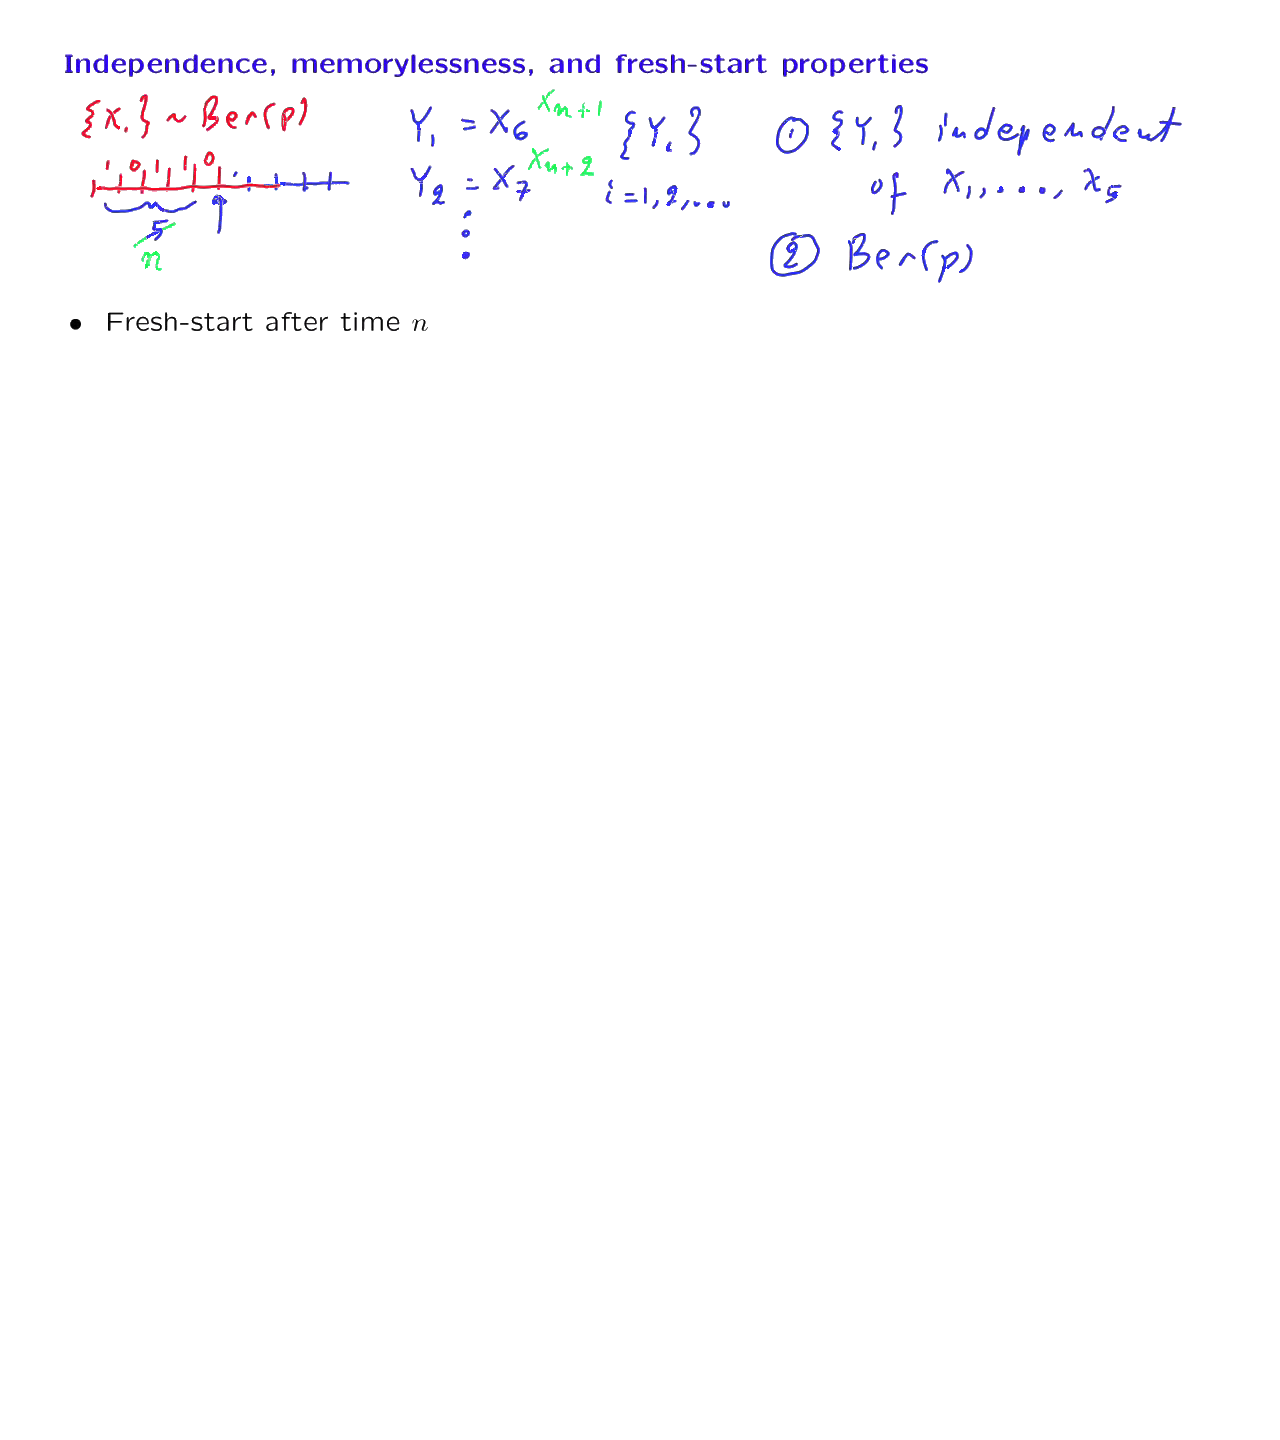 Independence, memorylessness, and fresh-start properties
{Xi} ~ Ber(p)
1 0 1 1 0
5
n
Y1 = X6 Xn+1
Y2 = X7 Xn+2
{Yi}
i=1,2,...
① {Yi} independent
of X1,..., X5
② Ber(p)
• Fresh-start after time n